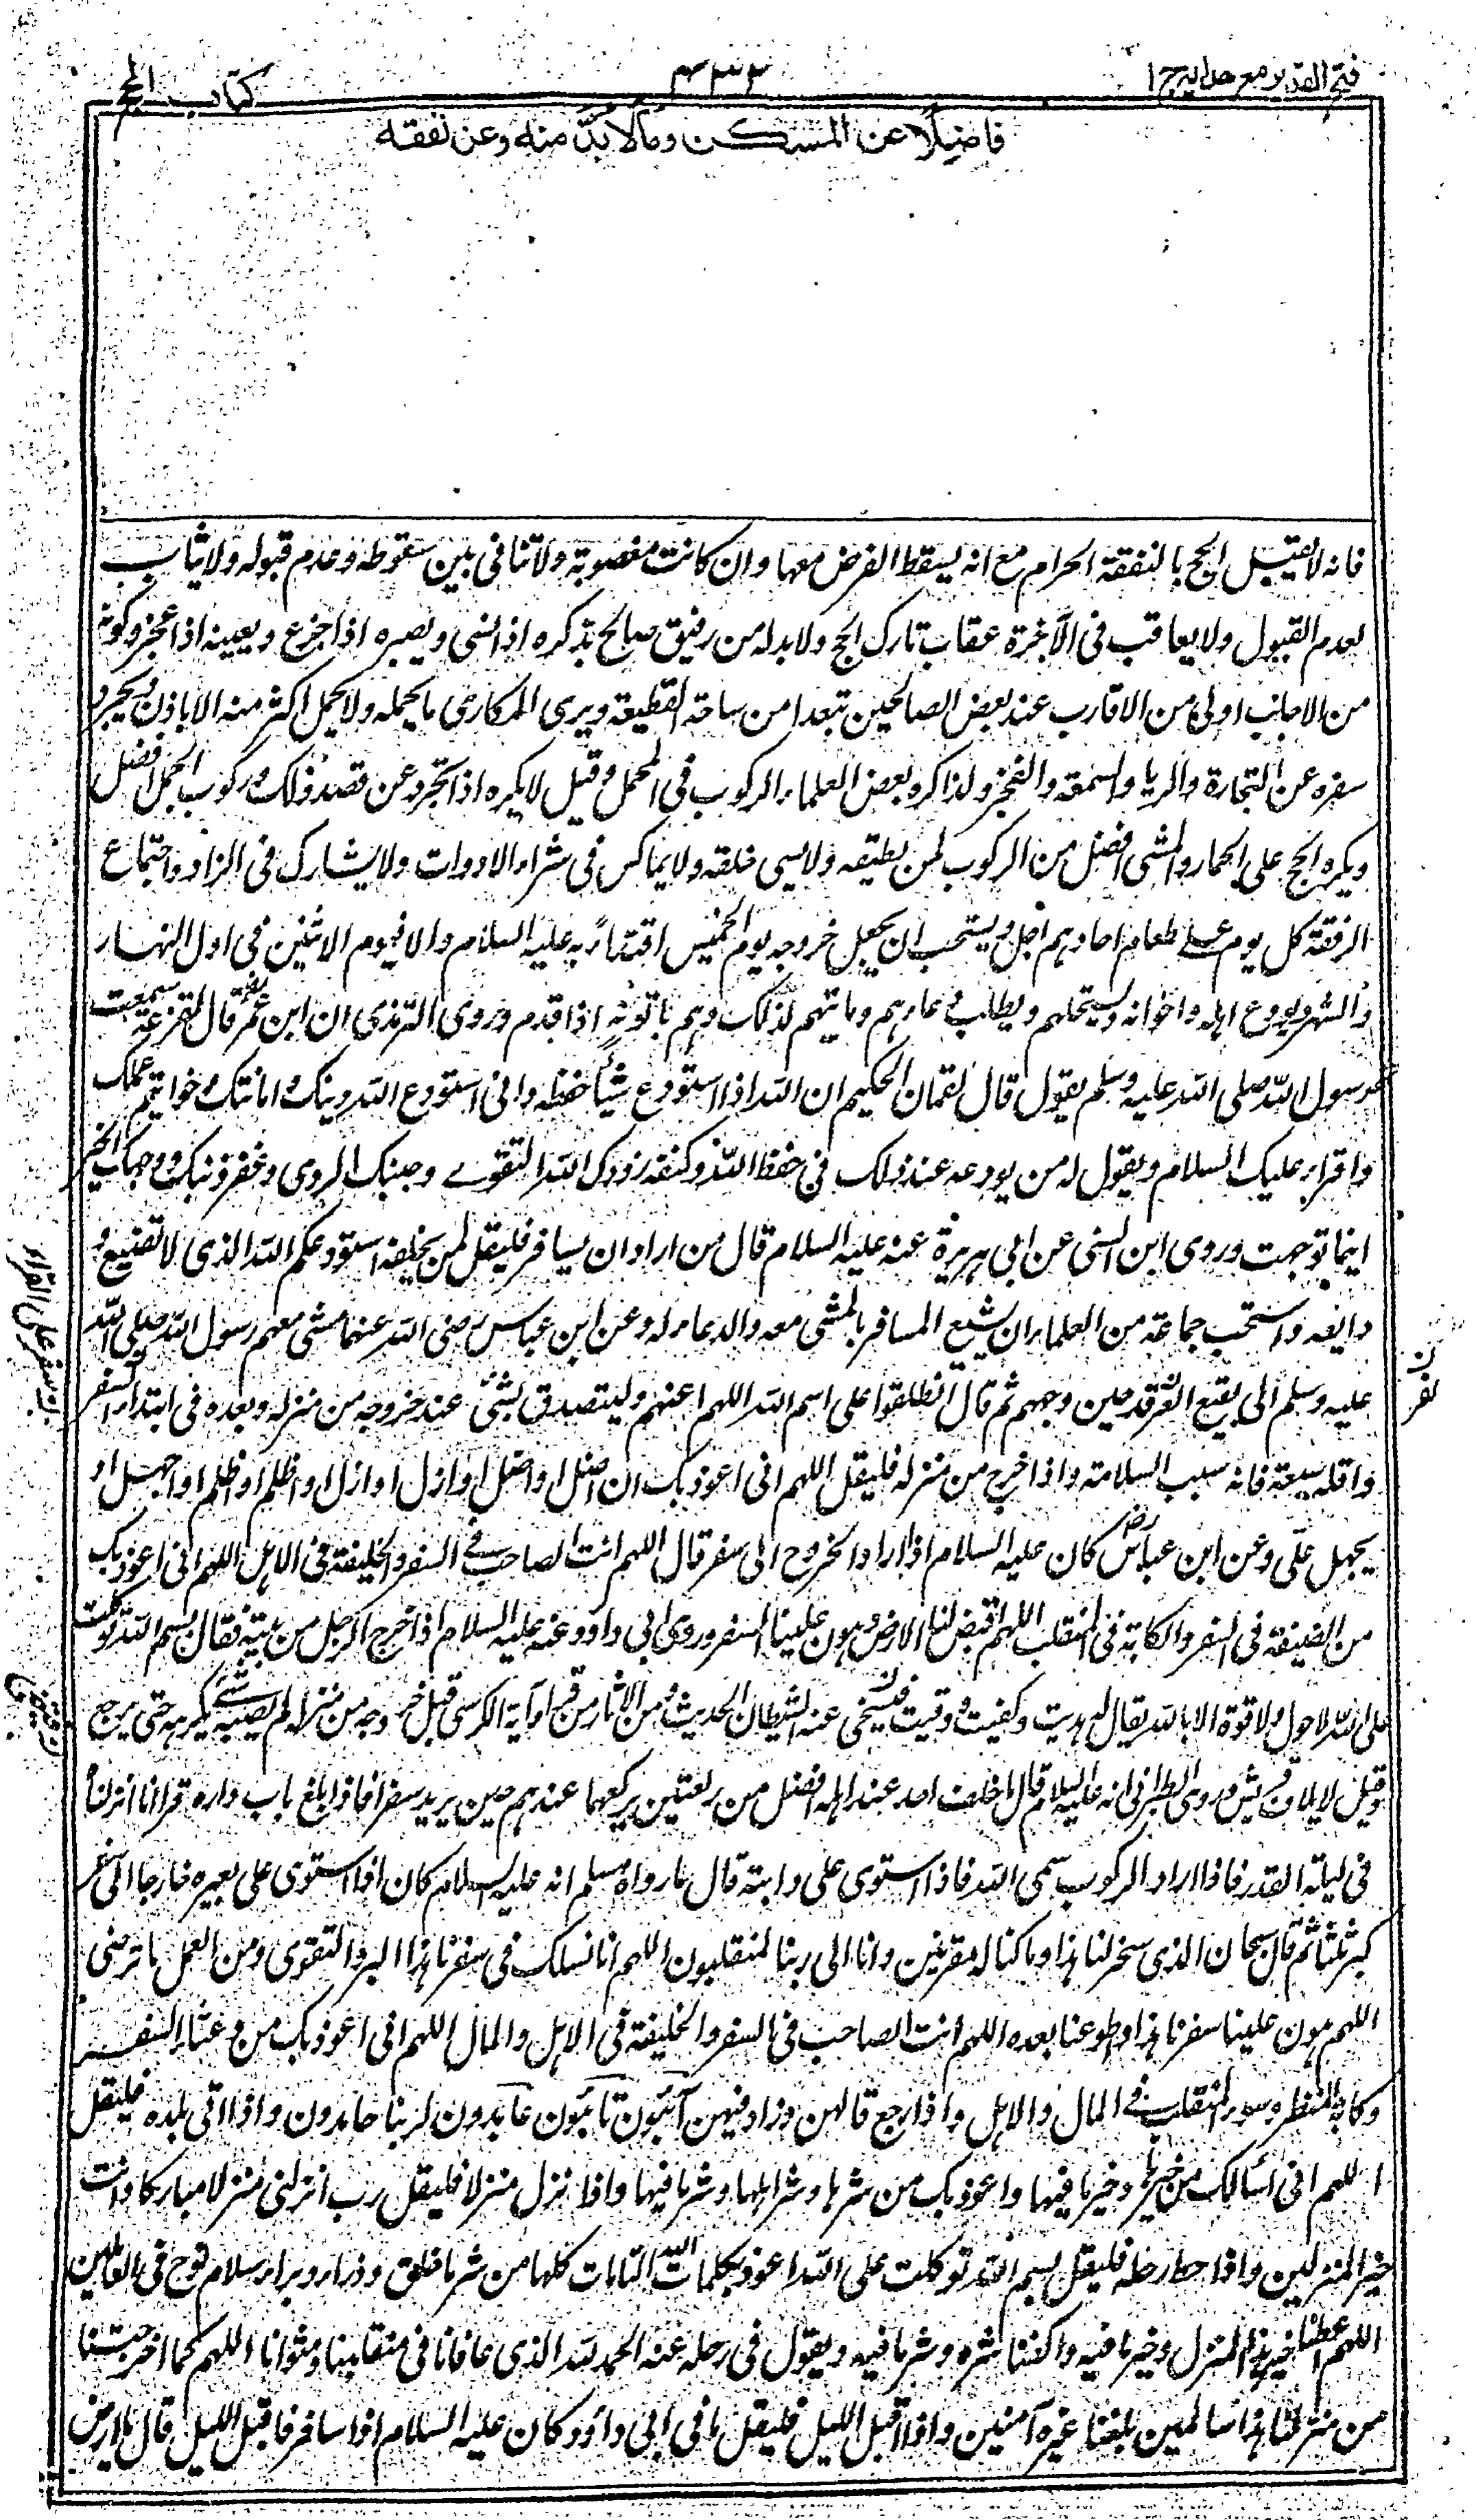 فتح القدير مع هدايه ج ا
٣٣٢
كتاب الحج
فاضلًا عن المسكن وما لا بدّ منه وعن نفقة
فانه لا يقبل الحج بالنفقة الحرام مع انه يسقط الفرض معها وان كانت مغصوبة ولا تنافى بين سقوطه وعدم قبوله ولا يثاب
لعدم القبول ولا يعاقب فى الآخرة عقاب تارك الحج ولا بد له من رفيق صالح يذكره اذا نسى ويصبره اذا جزع ويعينه اذا عجز وكونه
من الاجانب اولى من الاقارب عند بعض الصالحين تبعدا من ساحة القطيعة ويرى المكارى ما يحمله ولا يحمل اكثر منه الا باذنه ويجرد
سفره عن التجارة والريا والسمعة والفخر ولذا كره بعض العلماء الركوب فى المحمل وقيل لا يكره اذا تجرد عن قصد ذلك وركوب الجمل افضل
ويكره الحج على الحمار والمشى افضل من الركوب لمن يطيقه ولا يسى خلقه ولا يماكس فى شراء الادوات ولا يشارك فى الزاد واجتماع
الرفقة كل يوم على طعام احدهم احل ويستحب ان يجعل خروجه يوم الخميس اقتداءً به عليه السلام والا فيوم الاثنين فى اول النهار
والشهر ويودع اهله واخوانه ويستحلهم ويطلب دعاءهم وياتيهم لذلك وهم ياتونه اذا قدم وروى الترمذى ان ابن عمر قال لقزعة سمعت
رسول الله صلى الله عليه وسلم يقول قال لقمان الحكيم ان الله اذا استودع شيئا حفظه وانى استودع الله دينك وامانتك وخواتيم عملك
واقرأ عليك السلام ويقول له من يودعه عند ذلك فى حفظ الله وكنفه زودك الله التقوى وجنبك الردى وغفر ذنبك ووجهك الخير
اينما توجهت وروى ابن السنى عن ابى هريرة عنه عليه السلام قال من اراد ان يسافر فليقل لمن يخلفه استودعكم الله الذى لا تضيع و
دايعه واستحب جماعة من العلماء ان يشيع المسافر بالمشى معه والدعاء له وعن ابن عباس رضى الله عنهما مشى معهم رسول الله صلى الله
عليه وسلم الى بقيع الغرقد حين وجههم ثم قال انطلقوا على اسم الله اللهم اعنهم وليتصدق بشئ عند خروجه من منزله وبعده فى ابتداء السفر
واقله سبعة فانه سبب السلامة واذا خرج من منزله فليقل اللهم انى اعوذ بك ان اضل او اضل او ازل او ازل او اظلم او اظلم او اجهل او
يجهل علّى وعن ابن عباس رض كان عليه السلام اذا اراد الخروج الى سفر قال اللهم انت الصاحب فى السفر والخليفة فى الاهل اللهم انى اعوذ بك
من الضيقة فى السفر والكابة فى المنقلب اللهم اقبض لنا الارض وهون علينا السفر وروى ابى داود عنه عليه السلام اذا خرج الرجل من بيته فقال بسم الله توكلت
على الله لا حول ولا قوة الا بالله يقال له هديت وكفيت ووقيت فيتنحى عنه الشيطان الحديث ومن الاثار من قرأ آية الكرسى قبل خروجه من منزله لم يصبه شئ يكرهه حتى يرجع
وقيل لايلاف قريش وروى الطبرانى انه عليه السلام قال ما خلف احد عند اهله افضل من ركعتين يركعهما عندهم حين يريد سفرا فاذا بلغ باب داره قرا انا انزلناه
فى ليلة القدر فاذا اراد الركوب سمى الله فاذا استوى على دابته قال ما رواه مسلم انه عليه السلام كان اذا استوى على بعيره خارجا الى سفر
كبر ثلثا ثم قال سبحان الذى سخر لنا هذا وما كنا له مقرنين وانا الى ربنا لمنقلبون اللهم انا نسئلك فى سفرنا هذا البر والتقوى ومن العمل ما ترضى
اللهم هون علينا سفرنا هذا واطو عنا بعده اللهم انت الصاحب فى السفر والخليفة فى الاهل والمال اللهم انى اعوذ بك من وعثاء السفر
وكابة المنظر وسوء المنقلب فى المال والاهل واذا رجع قالهن وزاد فيهن آئبون تائبون عابدون لربنا حامدون واذا اتى بلده فليقل
اللهم انى اسألك من خيرها وخير ما فيها واعوذ بك من شرها وشر اهلها وشر ما فيها واذا نزل منزلا فليقل رب انزلنى منزلا مباركا وانت
خير المنزلين واذا حط رحله فليقل بسم الله توكلت على الله اعوذ بكلمات الله التامات كلها من شر ما خلق وذرأ وبرأ سلام على نوح فى العالمين
اللهم اعطنا خير هذا المنزل وخير ما فيه واكفنا شره وشر ما فيه ويقول فى رحله عنه الحمد لله الذى عافانا فى منقلبنا ومثوانا اللهم كما اخرجتنا
من منزلنا هذا سالمين بلغنا غيره آمنين واذا اقبل الليل فليقل ما فى ابى داؤد كان عليه السلام اذا سافر فاقبل الليل قال يا ارض